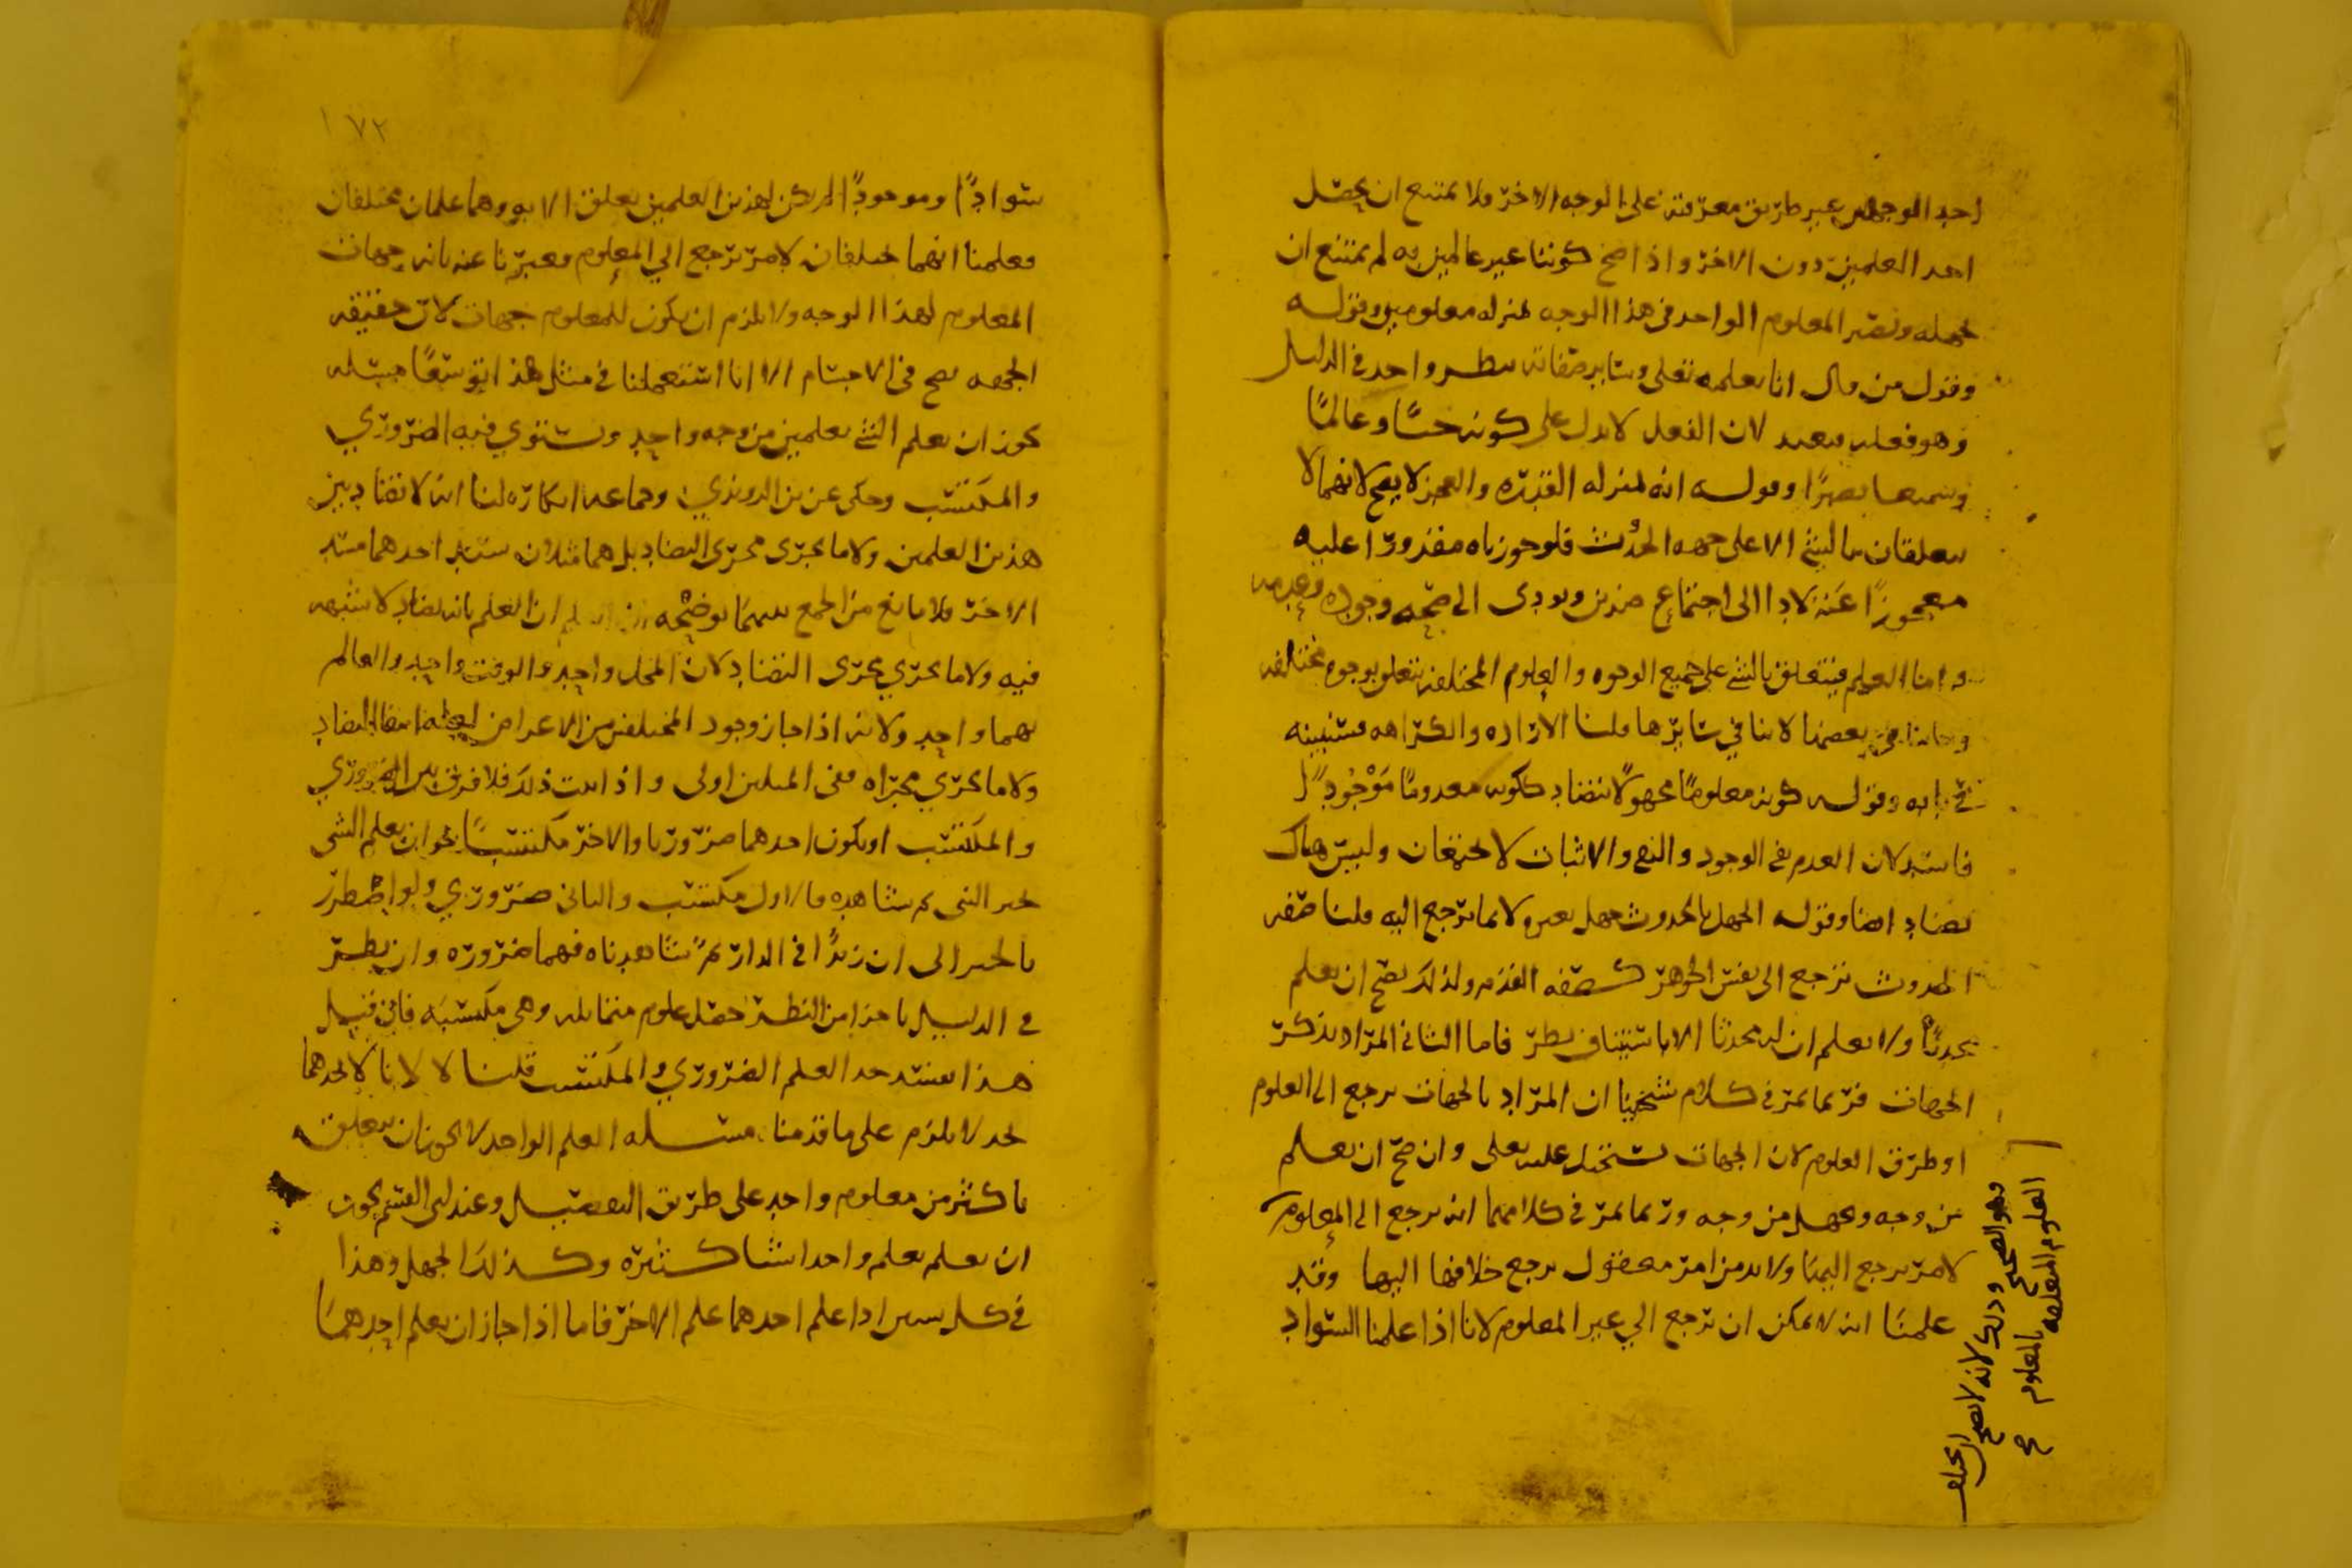 احد الوجهين غير طريق معرفته على الوجه الاخر ولا يمتنع ان يحصل
احد العلمين دون الاخر واذا صح كوننا غير عالمين به لم يمتنع ان
نجهله ونصير المعلوم الواحد في هذا الوجه بمنزله معلومين وقوله
وقول من قال انا نعلمه تعلى وساير صفاته بنظر واحد في الدليل
وهو فعله فبعيد لان الفعل لا يدل على كونه حيا وعالما
وسميعا بصيرا وقوله انه بمنزله القدره والعجز لا يصح لانهما لا
يتعلقان بالشي الا على جهه الحدوث فلو جوزناه مقدورا عليه
معجوزا عنه لادا الى اجتماع ضدين ويودى الى صحه وجوده وعدمه
واما العلم فيتعلق بالشي على جميع الوجوه والعلوم المختلفه تتعلق بوجوه مختلفه
في بعضها لا ينافي سايرها قلنا الاراده والكراهه فسنبينه
في بابه وقوله كونه معلوما مجهولا يتضاد ككونه معدوما موجودا
فاسد لان العدم نفي الوجود والنفي والاثبات لا يجتمعان وليس هناك
تضاد ايضا وقوله الجهل بالحدوث جهل بغيره لا بما يرجع اليه قلنا صفه
الحدوث ترجع الى نفس الجوهر كصفه القدم ولذلك يصح ان نعلم
محدثا ولا نعلم ان له محدثا الا باستيناف نظر فاما الثاني المراد بذكر
الجهات فربما يمر في كلام شيخينا ان المراد بالجهات يرجع الى العلوم
او طرق العلوم لان الجهات تستحيل عليه تعلى وان صح ان نعلم
من وجه ونجهل من وجه وربما يمر في كلامهما انه يرجع الى المعلوم
لامر يرجع اليها ولا بد من امر معقول يرجع خلافها اليها وقد
علمنا انه لا يمكن ان ترجع الي غير المعلوم لانا اذا علمنا السواد
وهو الصحيح وذلك لانه لا يصح
العلوم المتعلقه بالمعلوم
١٧٢
سوادا وموجودا لم يكن لهذين العلمين تعلق الا به وهما علمان مختلفان
فعلمنا انهما مختلفان لامر يرجع الي المعلوم فعبرنا عنه بانه جهات
المعلوم لهذا الوجه ولا يلزم ان يكون للمعلوم جهات لان حقيقه
الجهه تصح في الاجسام الا انا استعملنا في مثل هذا توسعا مسله
يجوز ان نعلم الشي بعلمين من وجه واحد ويستوي فيه الضروري
والمكتسب وحكي عن بن الروندي وجماعه انكاره لنا انه لا تضاد بين
هذين العلمين ولا ما يجرى مجرى التضاد بل هما مثلان سد احدهما مسد
الاخر فلا مانع من الجمع بينهما يوضحه ان العلم بانه تضاد لا شبهه
فيه ولا ما يجري مجرى التضاد لان المحل واحد والوقت واحد والعالم
بهما واحد ولانه اذا جاز وجود المختلفين من الاعراض لعله انتفا التضاد
ولا ما يجري مجراه ففي المثلين اولى واذا ثبت ذلك فلا فرق بين الضروري
والمكتسب او يكون احدهما ضروريا والاخر مكتسبا نحو ان يعلم الشي
بخبر النبي ثم يشاهده فالاول مكتسب والثاني ضروري ولو اضطرر
بالخبر الى ان زيدا في الدار ثم شاهدناه فهما ضروره وان نظر
في الدليل باجزا من النظر حصل علوم متماثله وهي مكتسبه فان قيل
هذا يفسد حد العلم الضروري والمكتسب قلنا لا لانا لا نحدهما
بحد لا يلزم على ما قدمنا مسله العلم الواحد لا يجوز ان يتعلق
باكثر من معلوم واحد على طريق التفصيل وعند ابي القسم يجوز
ان نعلم بعلم واحد اشيا كثيره وكذلك الجهل وهذا
في كل شيين اذا علم احدهما علم الاخر فاما اذا جاز ان يعلم احدهما